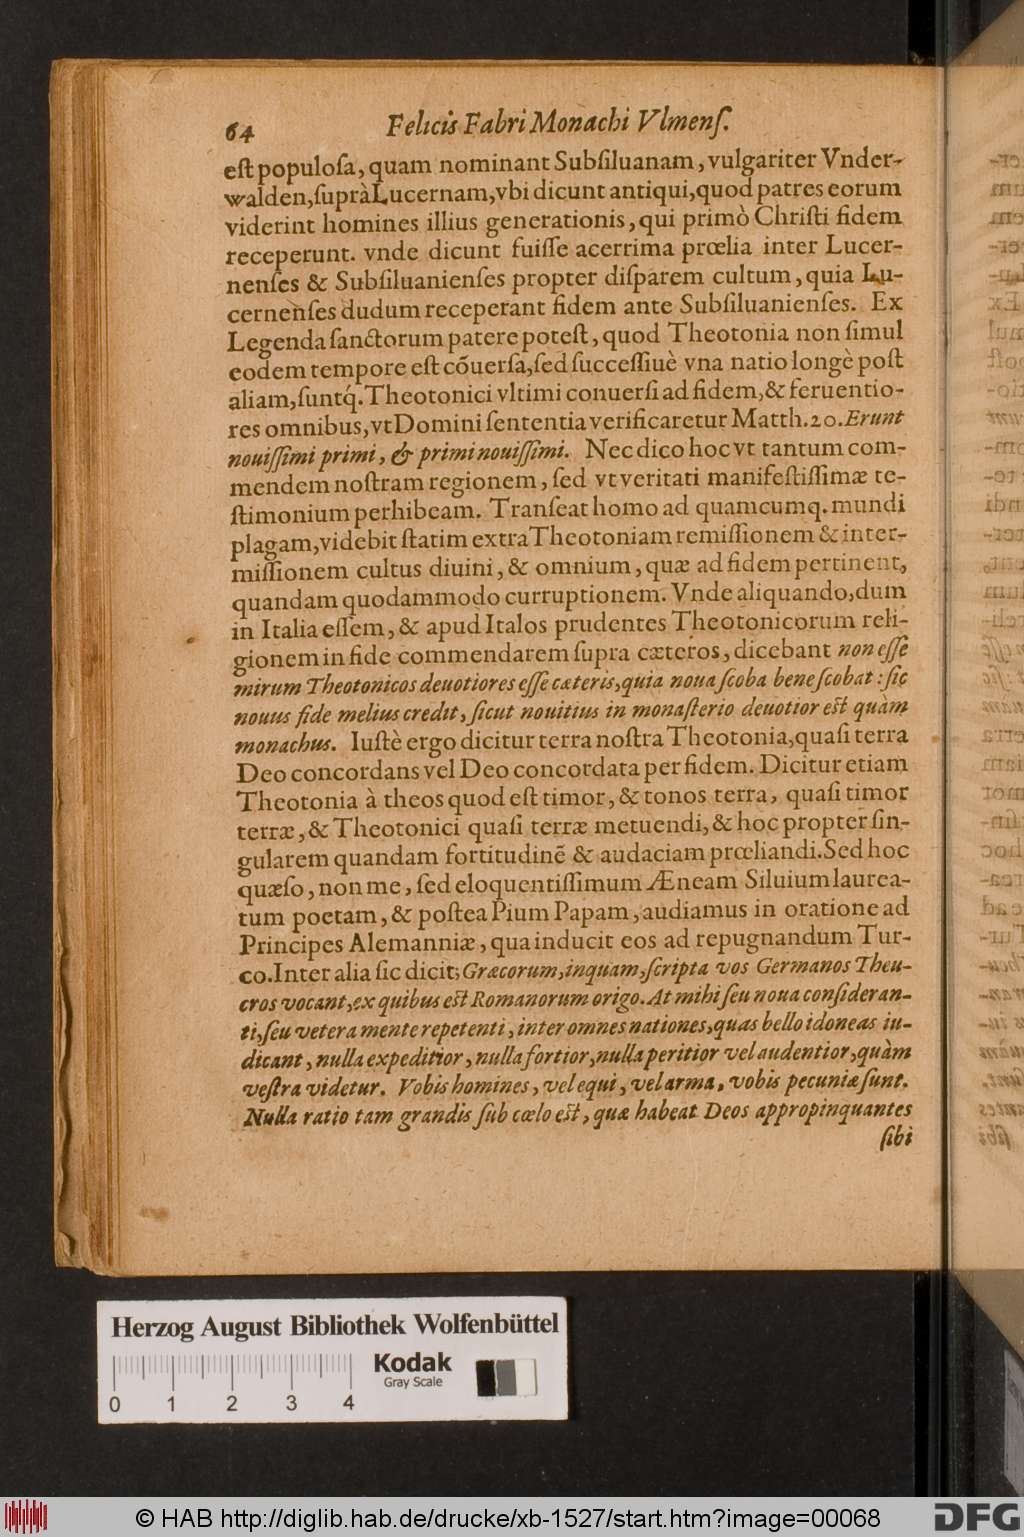 64 Felicis Fabri Monachi Vlmenſ.
eſt populoſa, quam nominant Subſiluanam, vulgariter Vnder-
walden, ſuprà Lucernam, vbi dicunt antiqui, quod patres eorum
viderint homines illius generationis, qui primò Chriſti fidem
receperunt. vnde dicunt fuiſſe acerrima prœlia inter Lucer-
nenſes & Subſiluanienſes propter diſparem cultum, quia Lu-
cernenſes dudum receperant fidem ante Subſiluanienſes. Ex
Legenda ſanctorum patere poteſt, quod Theotonia non ſimul
eodem tempore eſt cõuerſa, ſed ſucceſſiuè vna natio longè poſt
aliam, ſuntq́. Theotonici vltimi conuerſi ad fidem, & feruentio-
res omnibus, vt Domini ſententia verificaretur Matth. 20. Erunt
nouiſſimi primi, & primi nouiſſimi. Nec dico hoc vt tantum com-
mendem noſtram regionem, ſed vt veritati manifeſtiſſimæ te-
ſtimonium perhibeam. Tranſeat homo ad quamcumq. mundi
plagam, videbit ſtatim extra Theotoniam remiſſionem & inter-
miſſionem cultus diuini, & omnium, quæ ad fidem pertinent,
quandam quodammodo curruptionem. Vnde aliquando, dum
in Italia eſſem, & apud Italos prudentes Theotonicorum reli-
gionem in fide commendarem ſupra cæteros, dicebant non eſſe
mirum Theotonicos deuotiores eſſe cæteris, quia noua ſcoba bene ſcobat: ſic
nouus fide melius credit, ſicut nouitius in monaſterio deuotior eſt quàm
monachus. Iuſtè ergo dicitur terra noſtra Theotonia, quaſi terra
Deo concordans vel Deo concordata per fidem. Dicitur etiam
Theotonia à theos quod eſt timor, & tonos terra, quaſi timor
terræ, & Theotonici quaſi terræ metuendi, & hoc propter ſin-
gularem quandam fortitudinẽ & audaciam prœliandi. Sed hoc
quæſo, non me, ſed eloquentiſſimum Æneam Siluium laurea-
tum poetam, & poſtea Pium Papam, audiamus in oratione ad
Principes Alemanniæ, qua inducit eos ad repugnandum Tur-
co. Inter alia ſic dicit; Græcorum, inquam, ſcripta vos Germanos Theu-
cros vocant, ex quibus eſt Romanorum origo. At mihi ſeu noua conſideran-
ti, ſeu vetera mente repetenti, inter omnes nationes, quas bello idoneas iu-
dicant, nulla expeditior, nulla fortior, nulla peritior vel audentior, quàm
veſtra videtur. Vobis homines, vel equi, vel arma, vobis pecuniæ ſunt.
Nulla ratio tam grandis ſub cœlo eſt, quæ habeat Deos appropinquantes
ſibi
Herzog August Bibliothek Wolfenbüttel
Kodak
Gray Scale
0 1 2 3 4
© HAB http://diglib.hab.de/drucke/xb-1527/start.htm?image=00068
DFG